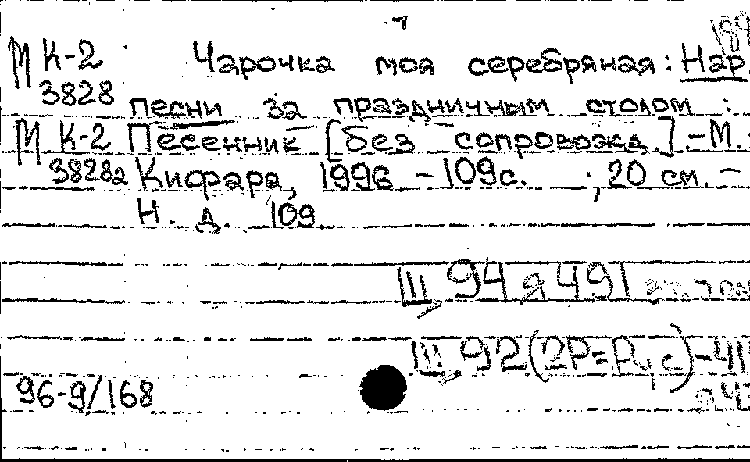 М К-2 Чарочка моя серебряная: Нар.
3828 песни за праздничным столом :
М К-2 Песенник [без сопровожд.] – М.
3828а Кифара, 1996 – 109с. ; 20 см. –
Н. д. 109.
III 94 я 491
III 92(2Р=Р4с)-41
96-9/168